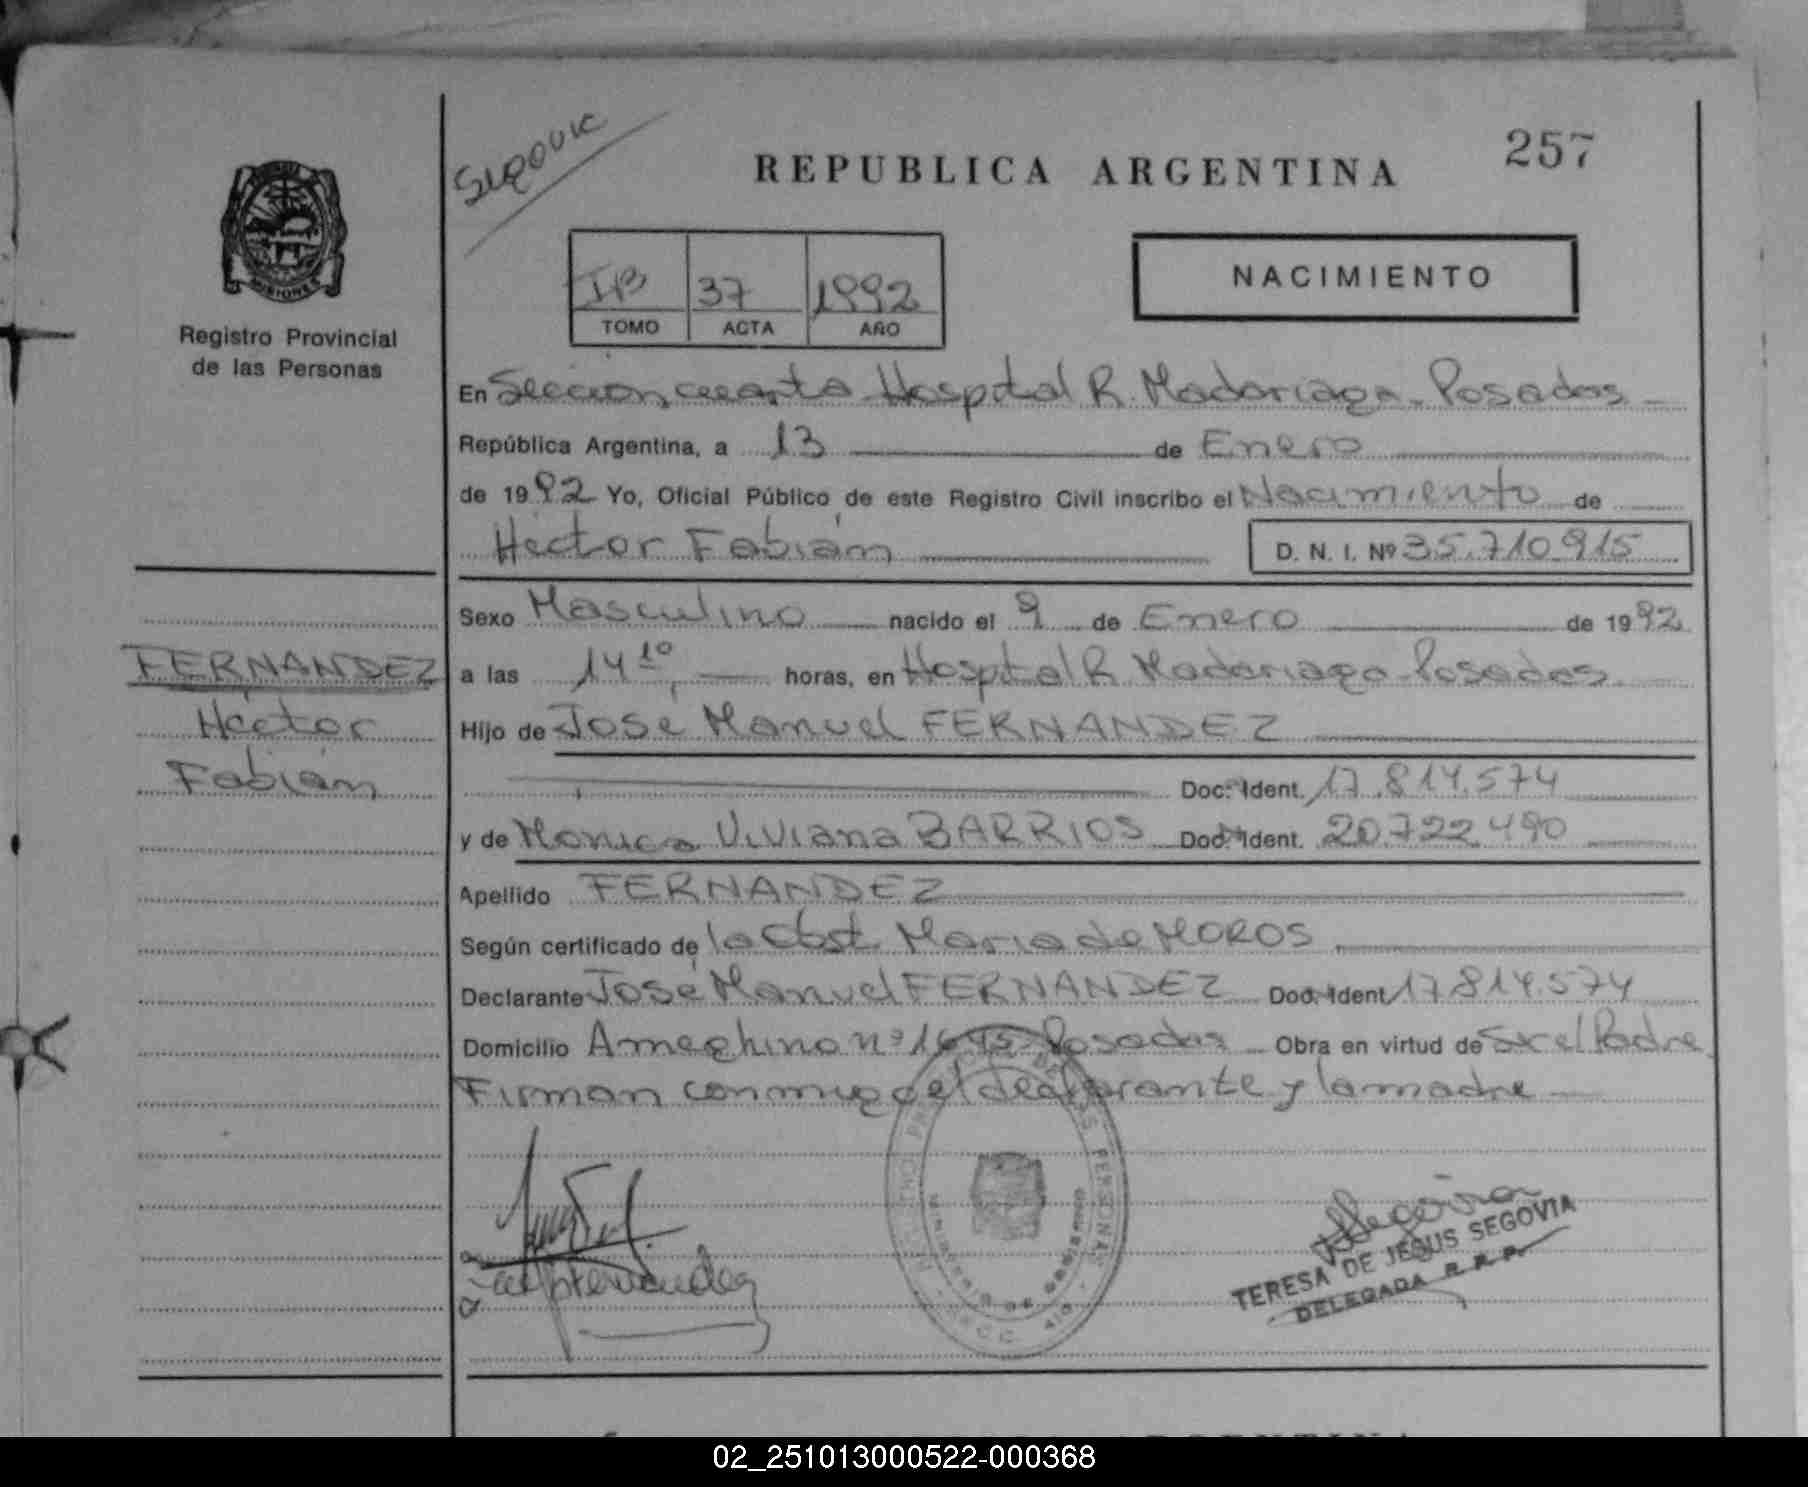 Segovia
REPUBLICA ARGENTINA
257
MISIONES
Registro Provincial
de las Personas
IB 37 1992
TOMO ACTA AÑO
NACIMIENTO
En Sección cuarta Hospital R. Madariaga - Posadas
República Argentina, a 13 de Enero
de 1992 Yo, Oficial Público de este Registro Civil inscribo el Nacimiento de
Héctor Fabián D. N. I. Nº 35.710.915
Sexo Masculino nacido el 9 de Enero de 1992
FERNANDEZ
Héctor
Fabián
a las 14 10 horas, en Hospital R. Madariaga - Posadas
Hijo de José Manuel FERNANDEZ
Doc. Ident. 17.814.574
y de Monica Viviana BARRIOS Doc. Ident. 20.722.490
Apellido FERNANDEZ
Según certificado de la Obst. Maria de MOROS
Declarante José Manuel FERNANDEZ Doc. Ident. 17.814.574
Domicilio Ameghino nº 1645 Posadas Obra en virtud de Ser el Padre
Firman conmigo el declarante y la madre
TERESA DE JESUS SEGOVIA
DELEGADA R. P. P.
02_251013000522-000368